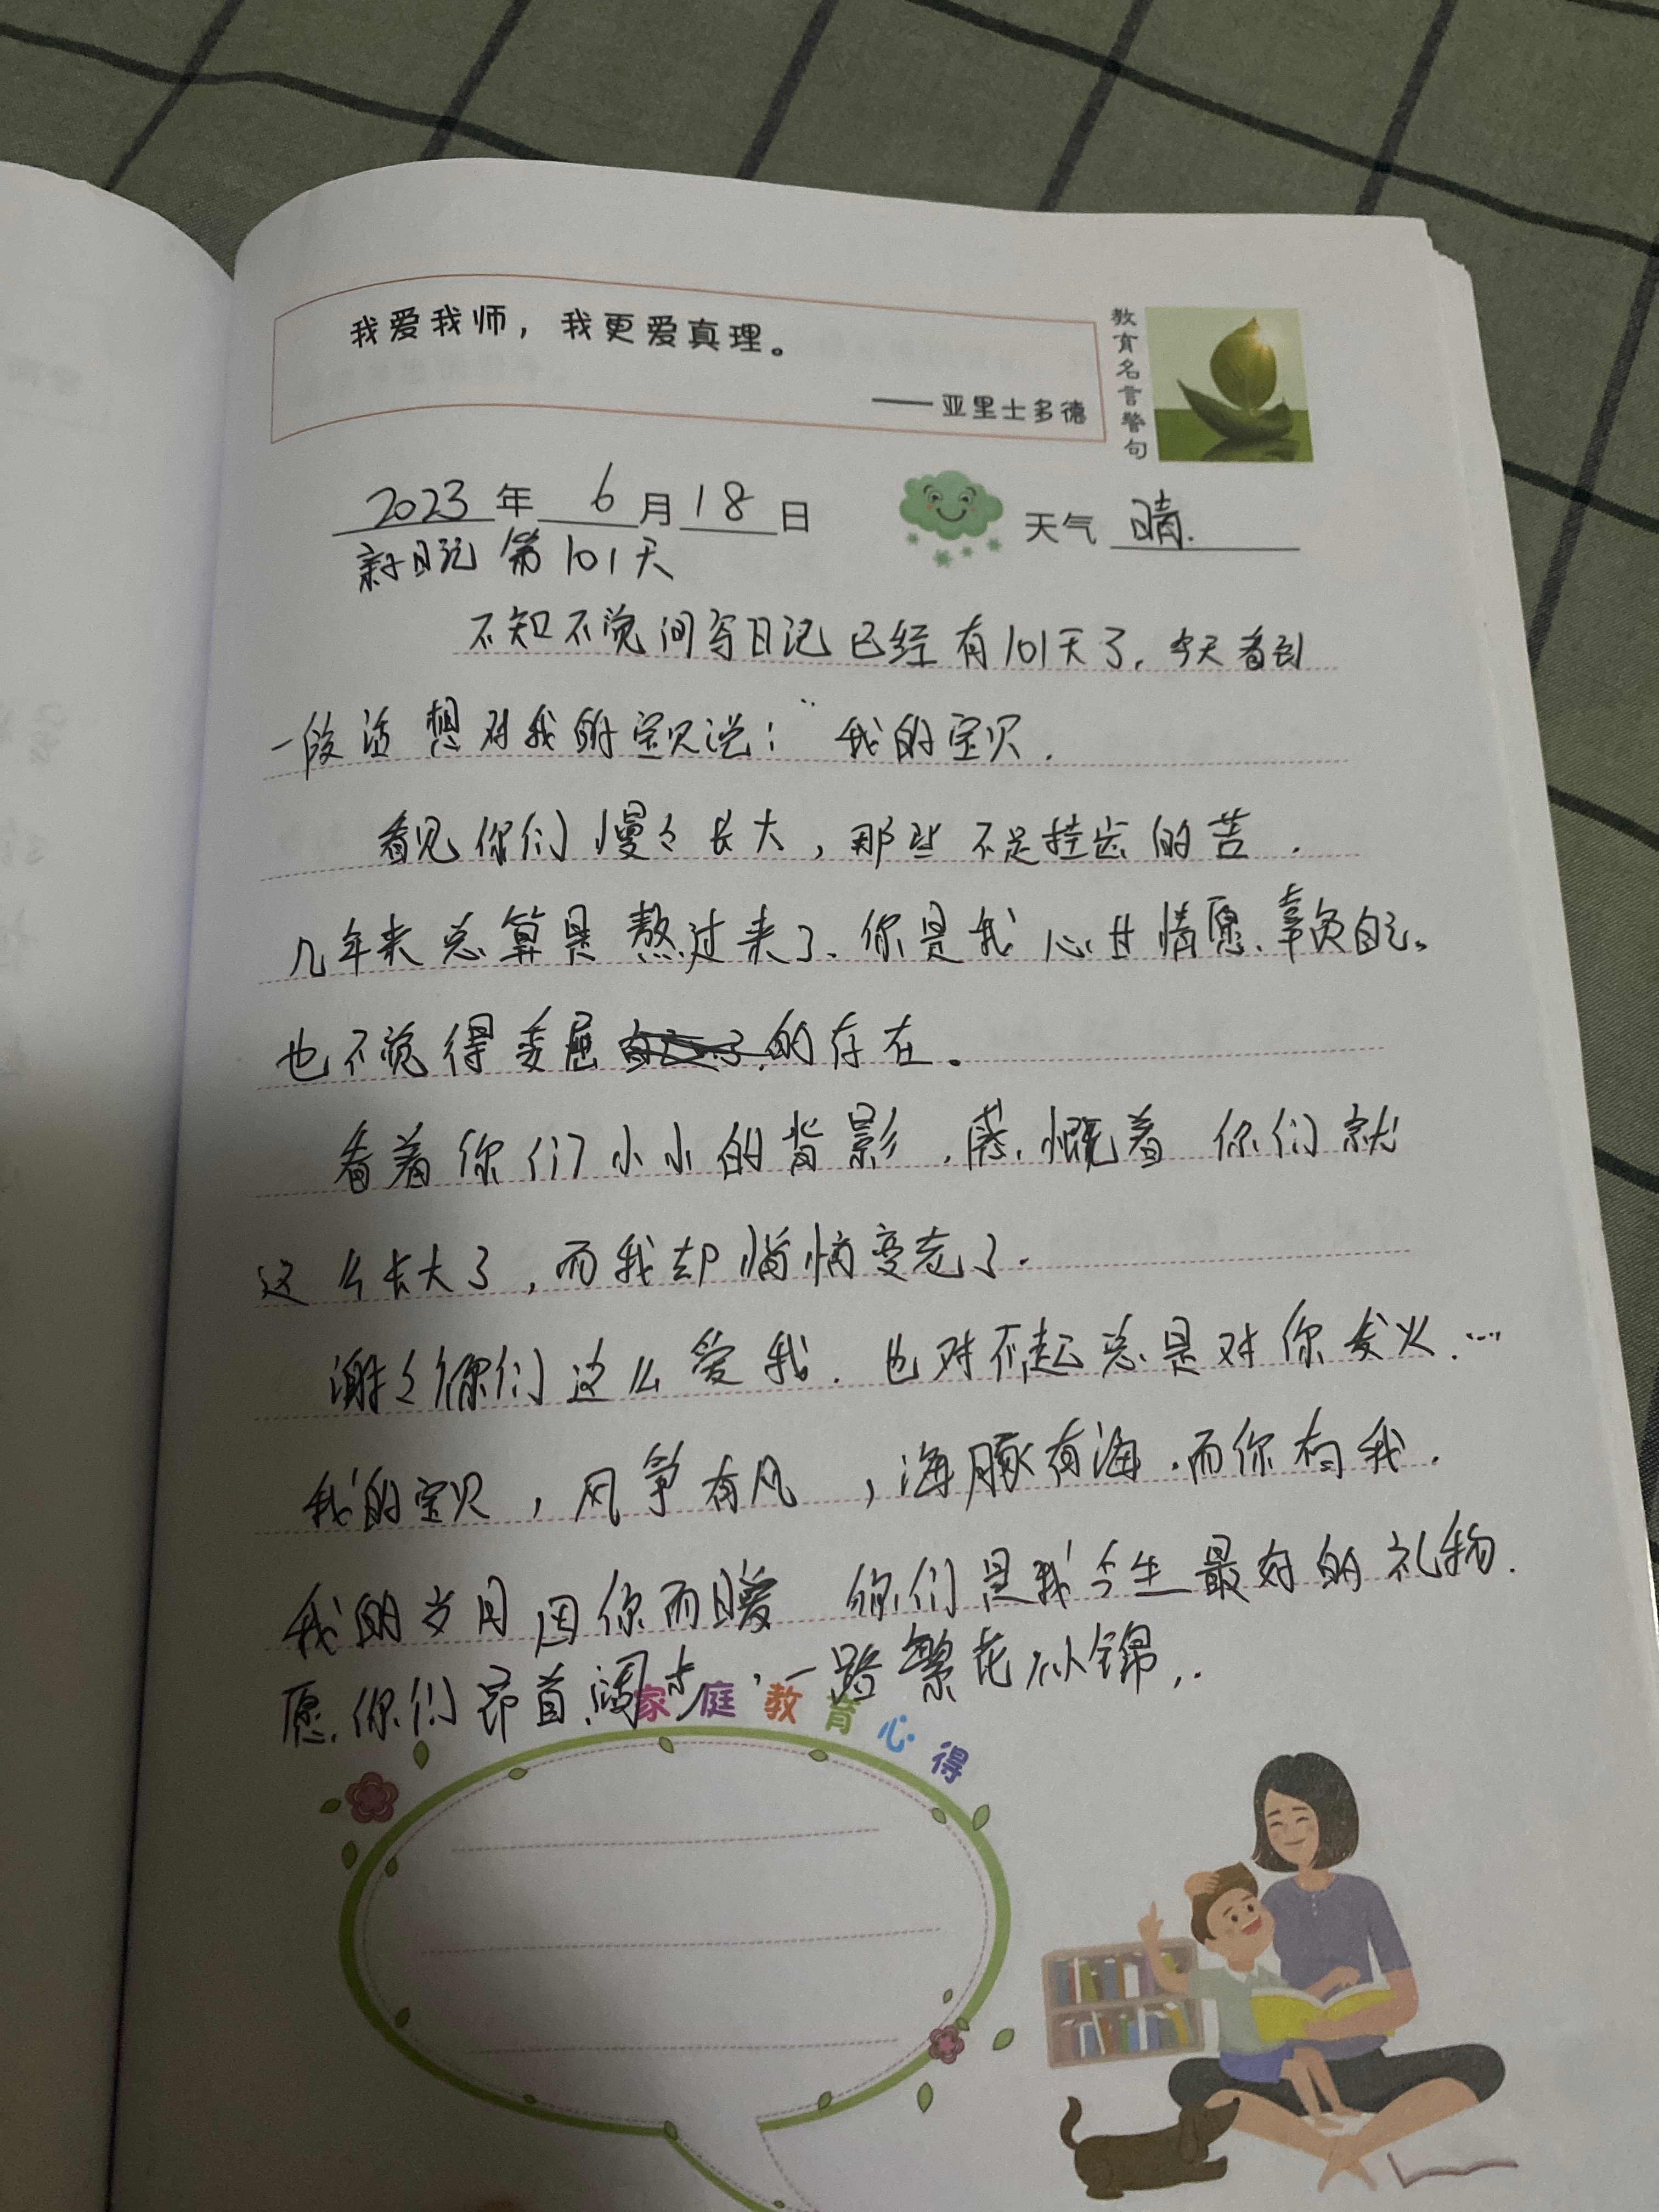 我爱我师，我更爱真理。
——亚里士多德
教育名言警句
2023年6月18日
天气 晴.
亲子日记 第101天
不知不觉间写日记已经有101天了，今天看到
一段话想对我的宝贝说：“我的宝贝.
看见你们慢々长大，那些不足挂齿的苦.
几年来总算是熬过来了、你是我心甘情愿、辜负自己。
也不觉得委屈的存在。
看着你们小小的背影，感慨着你们就
这么长大了，而我却悄悄变老了.
谢々你们这么爱我.也对不起总是对你发火……
我的宝贝，风筝有风，海豚有海.而你有我.
我的岁月因你而暖 你们是我今生最好的礼物.
愿你们昂首阔步，一路繁花似锦..
家庭教育心得